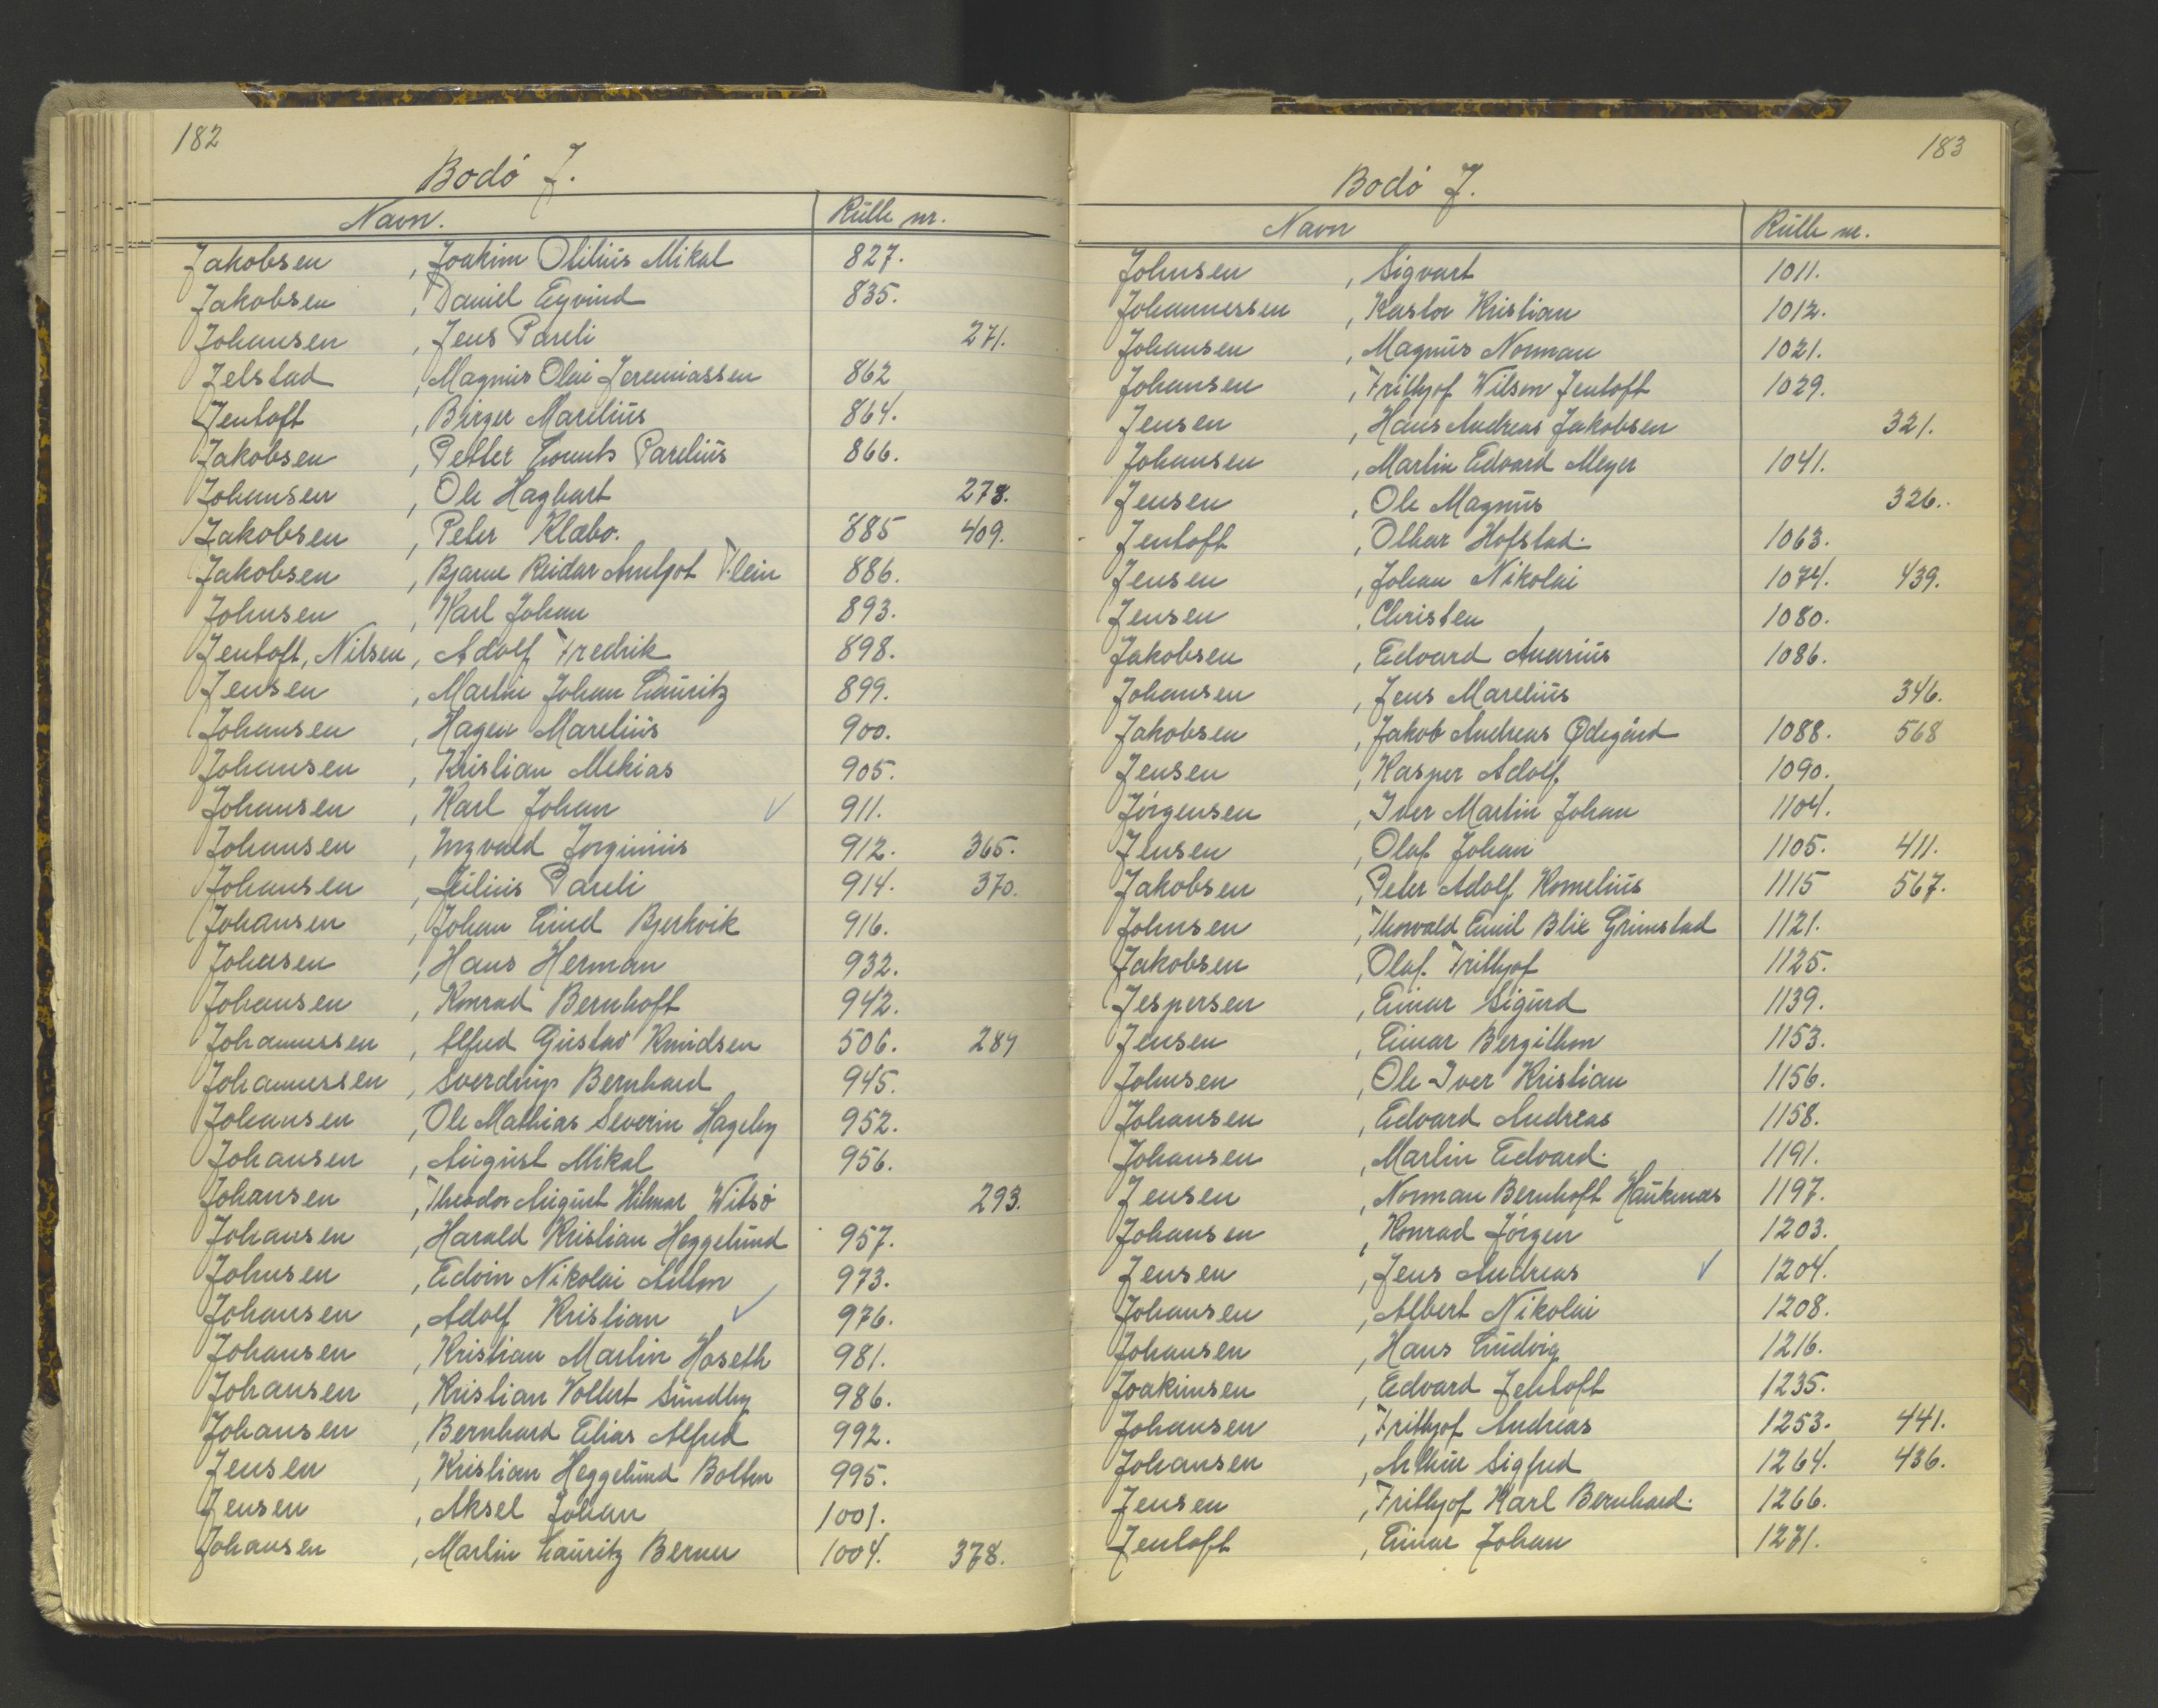 182
Bodó J.
Navn. Rulle nr.
Jakobsen , Joakim Otilius Mikal 827.
Jakobsen , Daniel Eyvind 835.
Johansen , Jens Pareli 271.
Jelstad , Magnus Olai Jeremiassen 862
Jentoft , Birger Marelius 864.
Jakobsen , Petter Lorents Parelius 866.
Johansen , Ole Haghart 278.
Jakobsen , Peter Klæbo. 885 409.
Jakobsen , Bjarne Reidar Arnljot 886.
Johnsen , Karl Johan 893.
Jentoft, Nilsen , Adolf Fredrik 898.
Jensen , Martin Johan Lauritz 899.
Johansen , Hagen Marelius 900.
Johansen , Kristian Mekias 905.
Johansen , Karl Johan ✓ 911.
Johansen , Ingvald Jorginius 912. 365.
Johansen , Julius Pareli 914. 370.
Johansen , Johan Lind Bjerkvik 916.
Johnsen , Hans Herman 932.
Johansen , Konrad Bernhoft 942.
Johannessen , Alfred Gustav Knudsen 506. 289
Johannessen , Sverdrup Bernhard 945.
Johansen , Ole Mathias Severin Hageby 952.
Johansen , August Mikal 956.
Johansen , Theodor August Hilmar Witsö 293.
Johansen , Harald Kristian Heggelund 957.
Johnsen , Edvin Nikolai Anton 973.
Johansen , Adolf Kristian ✓ 976.
Johansen , Kristian Martin Haseth 981.
Johansen , Kristian Vollert Sundby 986.
Johansen , Bernhard Elias Alfred 992.
Jensen , Kristian Heggelund Bolten 995.
Jensen , Aksel Johan 1001.
Johansen , Martin Lauritz Berner 1004. 378.
183
Bodó J.
Navn Rulle nr.
Johnsen , Sigvart 1011.
Johannessen , Kastor Kristian 1012.
Johansen , Magnus Norman 1021.
Johansen , Frithjof Wilson Jentoft 1029.
Jensen , Hans Andreas Jakobsen 321.
Johansen , Martin Edvard Meyer 1041.
Jensen , Ole Magnus 326.
Jentoft , Othar Hofstad. 1063.
Jensen , Johan Nikolai 1074. 439.
Jensen , Christen 1080.
Jakobsen , Edvard Anarius 1086.
Johansen , Jens Marelius 346.
Jakobsen , Jakob Andreas Ødegård 1088. 568
Jensen , Kasper Adolf 1090.
Jörgensen , Iver Martin Johan 1104.
Jensen , Olaf Johan 1105. 411.
Jakobsen , Peter Adolf Kornelius 1115 567.
Johnsen , Thorvald Emil Blix Grimstad 1121.
Jakobsen , Olaf Frithjof 1125.
Jespersen , Einar Sigurd 1139.
Jensen , Einar Bergithon 1153.
Johnsen , Ole Iver Kristian 1156.
Johansen , Edvard Andreas 1158.
Johansen , Martin Edvard. 1191.
Jensen , Norman Bernhoft Haukenæs 1197.
Johansen , Konrad Jörgen 1203.
Jensen , Jens Andreas ✓ 1204.
Johansen , Albert Nikolai 1208.
Johansen , Hans Ludvig 1216.
Joakimsen , Edvard Jentoft 1235.
Johansen , Frithjof Andreas 1253. 441.
Johansen , Arthur Sigfred 1264. 436.
Jensen , Frithjof Karl Bernhard. 1266.
Jentoft , Einar Johan 1271.